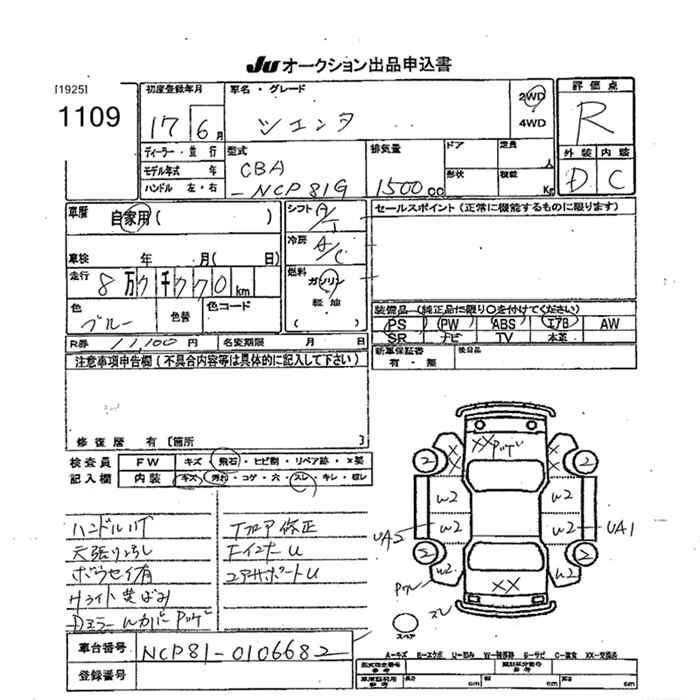 JU オークション出品申込書
[1925]
1109
初度登録年月
17 6月
車名・グレード
シエンタ
2WD
4WD
評価点
R
外装 内装
D C
ディーラー・並行
モデル年式 年
ハンドル 左・右
型式
CBA
-NCP81G
排気量
1500cc
ドア
定員
人
形状
積載
Kg
車歴
自家用( )
車検 年 月( 日)
走行
8万 km
色
ブルー
色替
色コード
シフト A/T
冷房 A/C
燃料
ガソリン
軽油
( )
セールスポイント(正常に機能するものに限ります)
装備品(純正品に限り○を付けてください)
PS PW ABS エアB AW
SR ナビ TV 本革
新車保証書
有・無
後日品
R券 11,100円 名変期限 月 日
注意事項申告欄(不具合内容等は具体的に記入して下さい)
修復歴 有[箇所 ]
検査員 FW キズ・飛石・ヒビ割・リペア跡・×要
記入欄 内装 キズ・汚れ・コゲ・穴・スレ・キレ・欠レ
ハンドルリT
天張りよゴし
ボウセイ有
Hライト黄ばみ
Dミラー
Tフロア修正
Fインナーu
コアサポートu
XXPワレ
X X
X X
2 2
W2 W2
UA2 W2 W2 UA1
2 2
W2 W2
XX
Pワレ
スレ
スペア
A-キズ E-エクボ U-凹み W-補修跡 S-サビ C-腐食 XX-交換済
車台番号 NCP81-0106682
登録番号
長さ cm 幅 cm 高さ cm